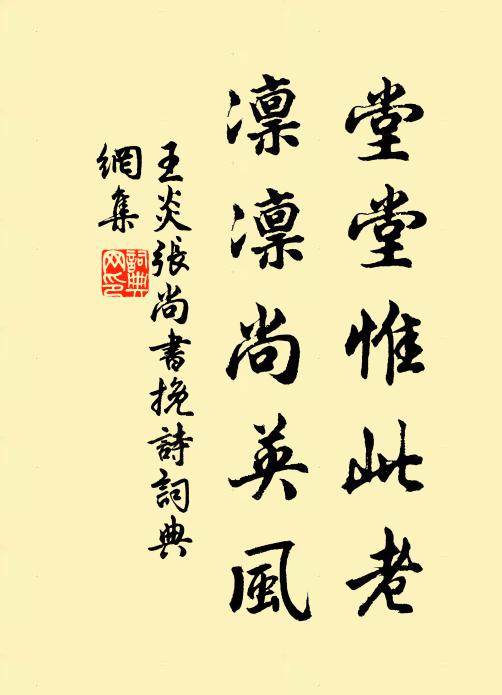 堂堂惟此老
凛凛尚英風
王炎張尚書挽詩詞典
網集
詞典
网印